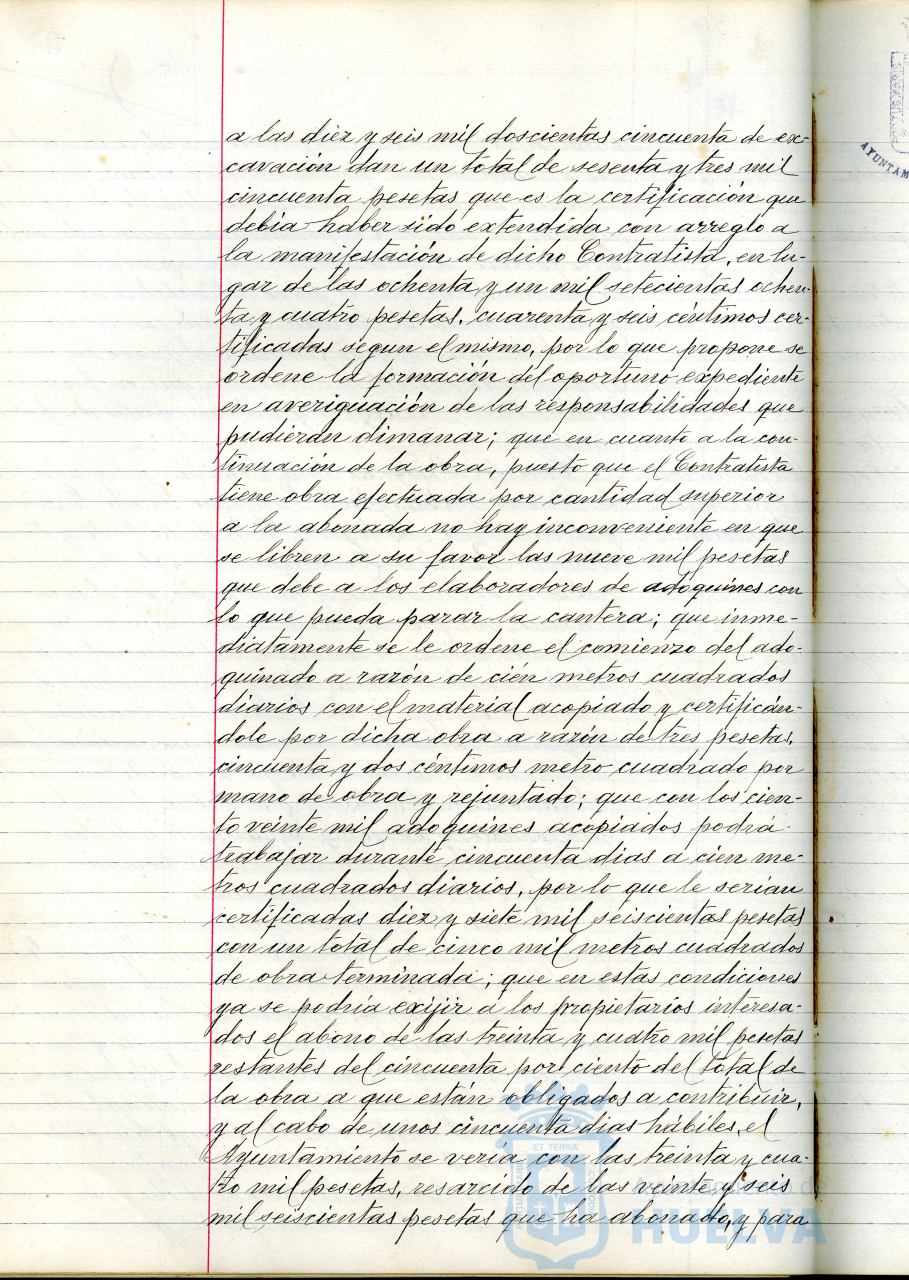 a las diez y seis mil doscientas cincuenta de ex-
cavación dan un total de sesenta y tres mil
cincuenta pesetas que es la certificación que
debia haber sido extendida con arreglo a
la manifestación de dicho Contratista, en lu-
gar de las ochenta y un mil setecientas ochen-
ta y cuatro pesetas, cuarenta y seis céntimos cer-
tificadas segun el mismo, por lo que propone se
ordene la formación del oportuno expediente
en averiguación de las responsabilidades que
pudieran dimanar; que en cuanto a la con-
tinuación de la obra, puesto que el Contratista
tiene obra efectuada por cantidad superior
a la abonada no hay inconveniente en que
se libren a su favor las nueve mil pesetas
que debe a los elaboradores de adoquines con
lo que pueda parar la cantera; que inme-
diatamente se le ordene el comienzo del ado-
quinado a razón de cién metros cuadrados
diarios con el material acopiado y certificán-
dole por dicha obra a razón de tres pesetas,
cincuenta y dos céntimos metro cuadrado por
mano de obra y rejuntado; que con los cien-
to veinte mil adoquines acopiados podrá
trabajar durante cincuenta dias a cien me-
tros cuadrados diarios, por lo que le serian
certificadas diez y siete mil seiscientas pesetas
con un total de cinco mil metros cuadrados
de obra terminada; que en estas condiciones
ya se podría exijir a los propietarios interesa-
dos el abono de las treinta y cuatro mil pesetas
restantes del cincuenta por ciento del total de
la obra a que están obligados a contribuir,
y al cabo de unos cincuenta dias hábiles, el
Ayuntamiento se veria con las treinta y cua-
tro mil pesetas, resarcido de las veinte y seis
mil seiscientas pesetas que ha abonado, y para
AYUNTAM
ET TERRÆ
Ayuntamiento de
HUELVA